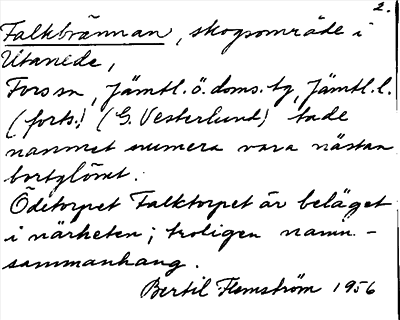 2.
Falkbrännan, skogsområde i
Utanede,
Fors sn, Jämtl. ö. doms. tg, Jämtl. l.
(forts.) (G. Vesterlund) sade
namnet numera vara nästan
bortglömt.
Ödetorpet Falktorpet är beläget
i närheten; troligen namn-
sammanhang.
Bertil Flemström 1956